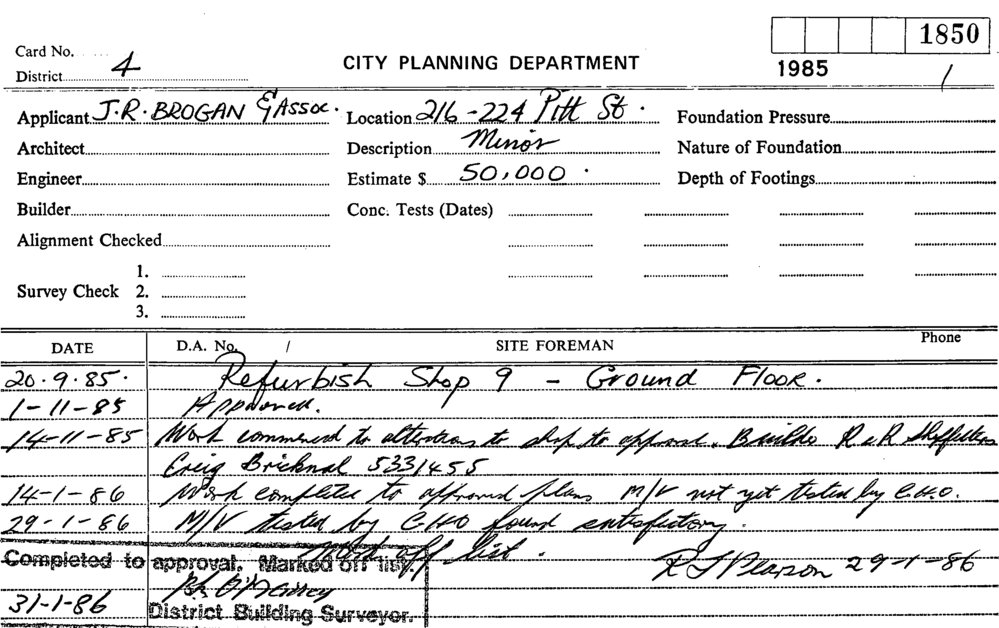 1850
Card No.
District 4
CITY PLANNING DEPARTMENT
1985 /
Applicant J.R. BROGAN & ASSOC. Location 216-224 Pitt St. Foundation Pressure
Architect Description Minor Nature of Foundation
Engineer Estimate $ 50,000. Depth of Footings
Builder Conc. Tests (Dates)
Alignment Checked
1.
Survey Check 2.
3.
DATE D.A. No. / SITE FOREMAN Phone
20.9.85. Refurbish Shop 9 - Ground Floor.
1-11-85 Approved.
14-11-85 Work commenced to alterations to shop to approval. Builder R & R Shopfitters
Craig Bricknal 5331455
14-1-86 Work completed to approved plans M/V not yet tested by C.H.O.
29-1-86 M/V tested by CHO found satisfactory.
Work off list.
Completed to approval. Marked off list.
Pearson 29-1-86
31-1-86 District Building Surveyor.